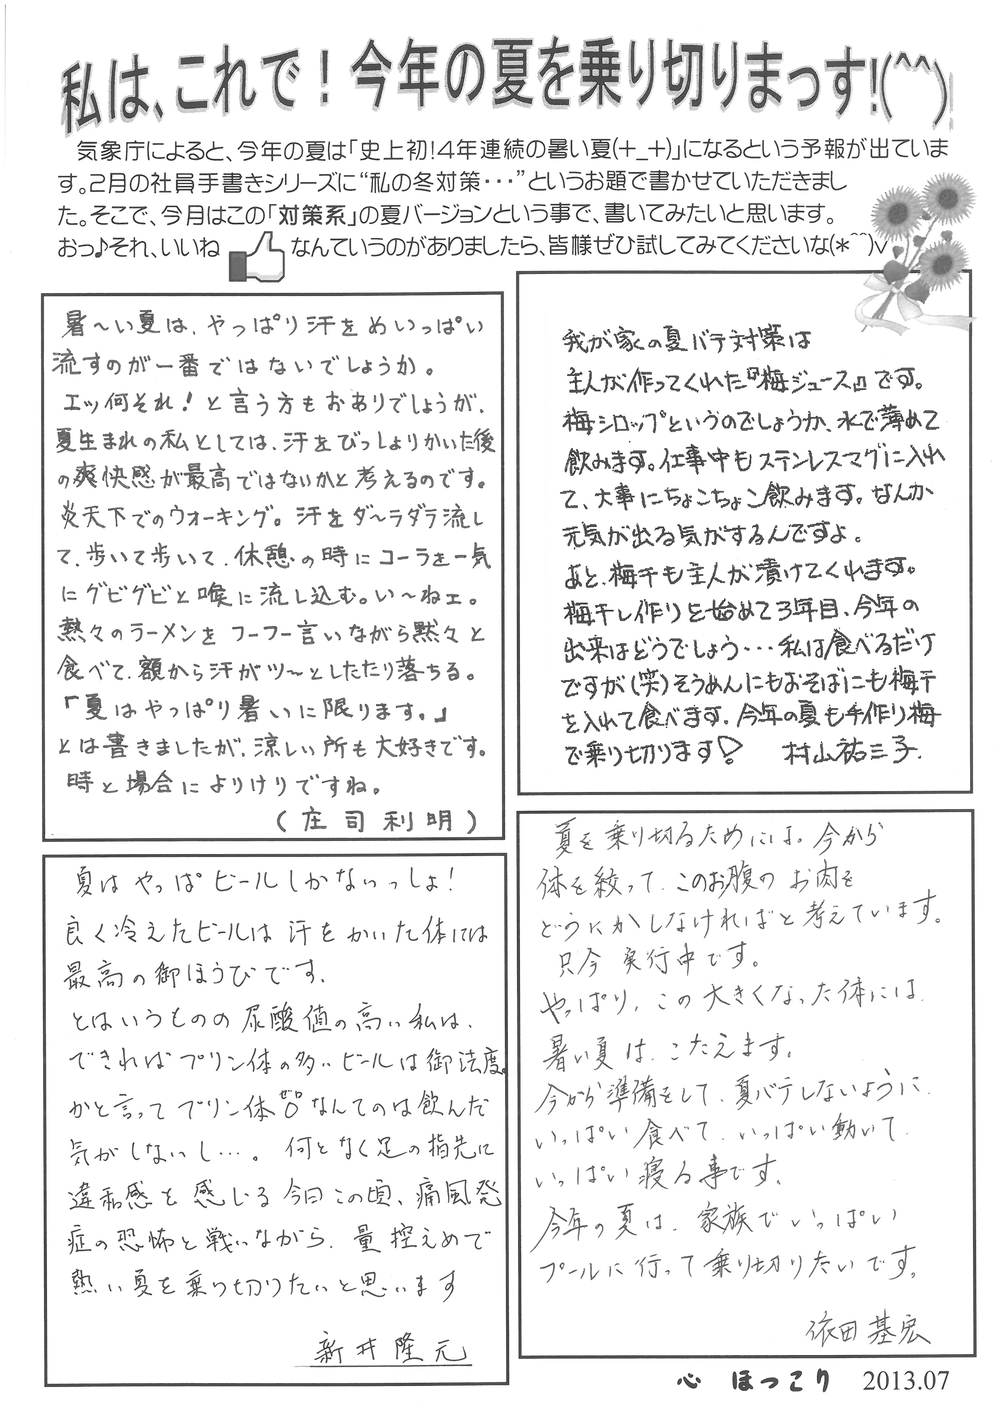 私は、これで！今年の夏を乗り切りまっす!(^^)!
気象庁によると、今年の夏は「史上初!4年連続の暑い夏(+_+)」になるという予報が出ていま
す。2月の社員手書きシリーズに“私の冬対策・・・”というお題で書かせていただきまし
た。そこで、今月はこの「対策系」の夏バージョンという事で、書いてみたいと思います。
おっ♪それ、いいね なんていうのがありましたら、皆様ぜひ試してみてくださいな(*^^)v
暑～い夏は、やっぱり汗をめいっぱい
流すのが一番ではないでしょうか。
エッ何それ！と言う方もおありでしょうが、
夏生まれの私としては、汗をびっしょりかいた後
の爽快感が最高ではないかと考えるのです。
炎天下でのウオーキング。汗をダ～ラダラ流し
て、歩いて歩いて、休憩の時にコーラを一気
にグビグビと喉に流し込む。い～ねェ。
熱々のラーメンをフーフー言いながら黙々と
食べて、額から汗がツ～としたたり落ちる。
「夏はやっぱり暑いに限ります。」
とは書きましたが、涼しい所も大好きです。
時と場合によりけりですね。
(庄司利明)
我が家の夏バテ対策は
主人が作ってくれた『梅ジュース』です。
梅シロップというのでしょうか、水で薄めて
飲みます。仕事中もステンレスマグに入れ
て、大事にちょこちょこ飲みます。なんか
元気が出る気がするんですよ。
あと、梅干も主人が漬けてくれます。
梅干し作りを始めて3年目、今年の
出来はどうでしょう・・・私は食べるだけ
ですが(笑)そうめんにもおそばにも梅干
を入れて食べます。今年の夏も手作り梅
で乗り切ります！ 村山祐三子.
夏は やっぱ ビールしかないっしょ！
良く冷えたビールは 汗をかいた体には
最高の御ほうびです、
とはいうものの 尿酸値の高い私は、
できればプリン体の多いビールは御法度。
かと言って プリン体ゼロなんてのは飲んだ
気がしないし…。 何となく足の指先に
違和感を感じる今日この頃、痛風発
症の恐怖と戦いながら、量控えめで
熱い夏を乗り切りたいと思います
新井隆元
夏を乗り切るためには。今から
体を絞って、このお腹の お肉を
どうにかしなければと考えています。
只今 実行中です。
やっぱり、この大きくなった体には、
暑い夏は、こたえます。
今から準備をして、夏バテしないように、
いっぱい食べて、いっぱい動いて、
いっぱい寝る事です、
今年の夏は、家族でいっぱい
プールに行って乗り切りたいです。
依田基宏
心 ほっこり 2013.07